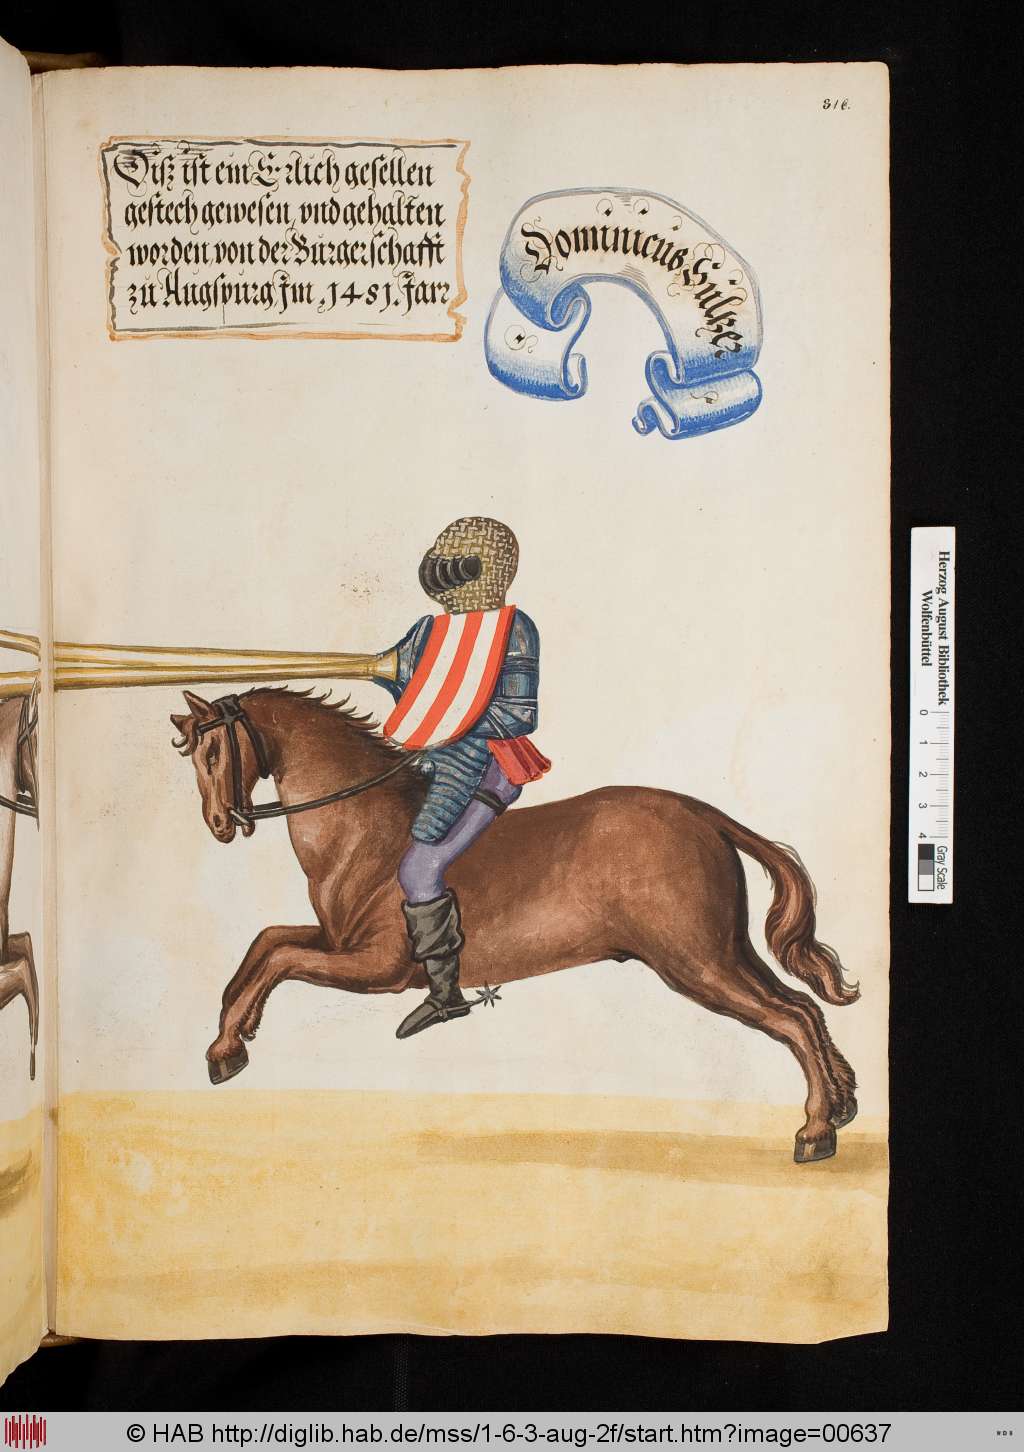 316.
Diß ist ein Erlich gesellen
gestech gewesen, vnd gehalten
worden von der Burgerschafft
zu Augspurg Im .1481. Jarr
Dominicus Sulzer
Herzog August Bibliothek
Wolfenbüttel
0 1 2 3 4
Gray Scale
© HAB http://diglib.hab.de/mss/1-6-3-aug-2f/start.htm?image=00637